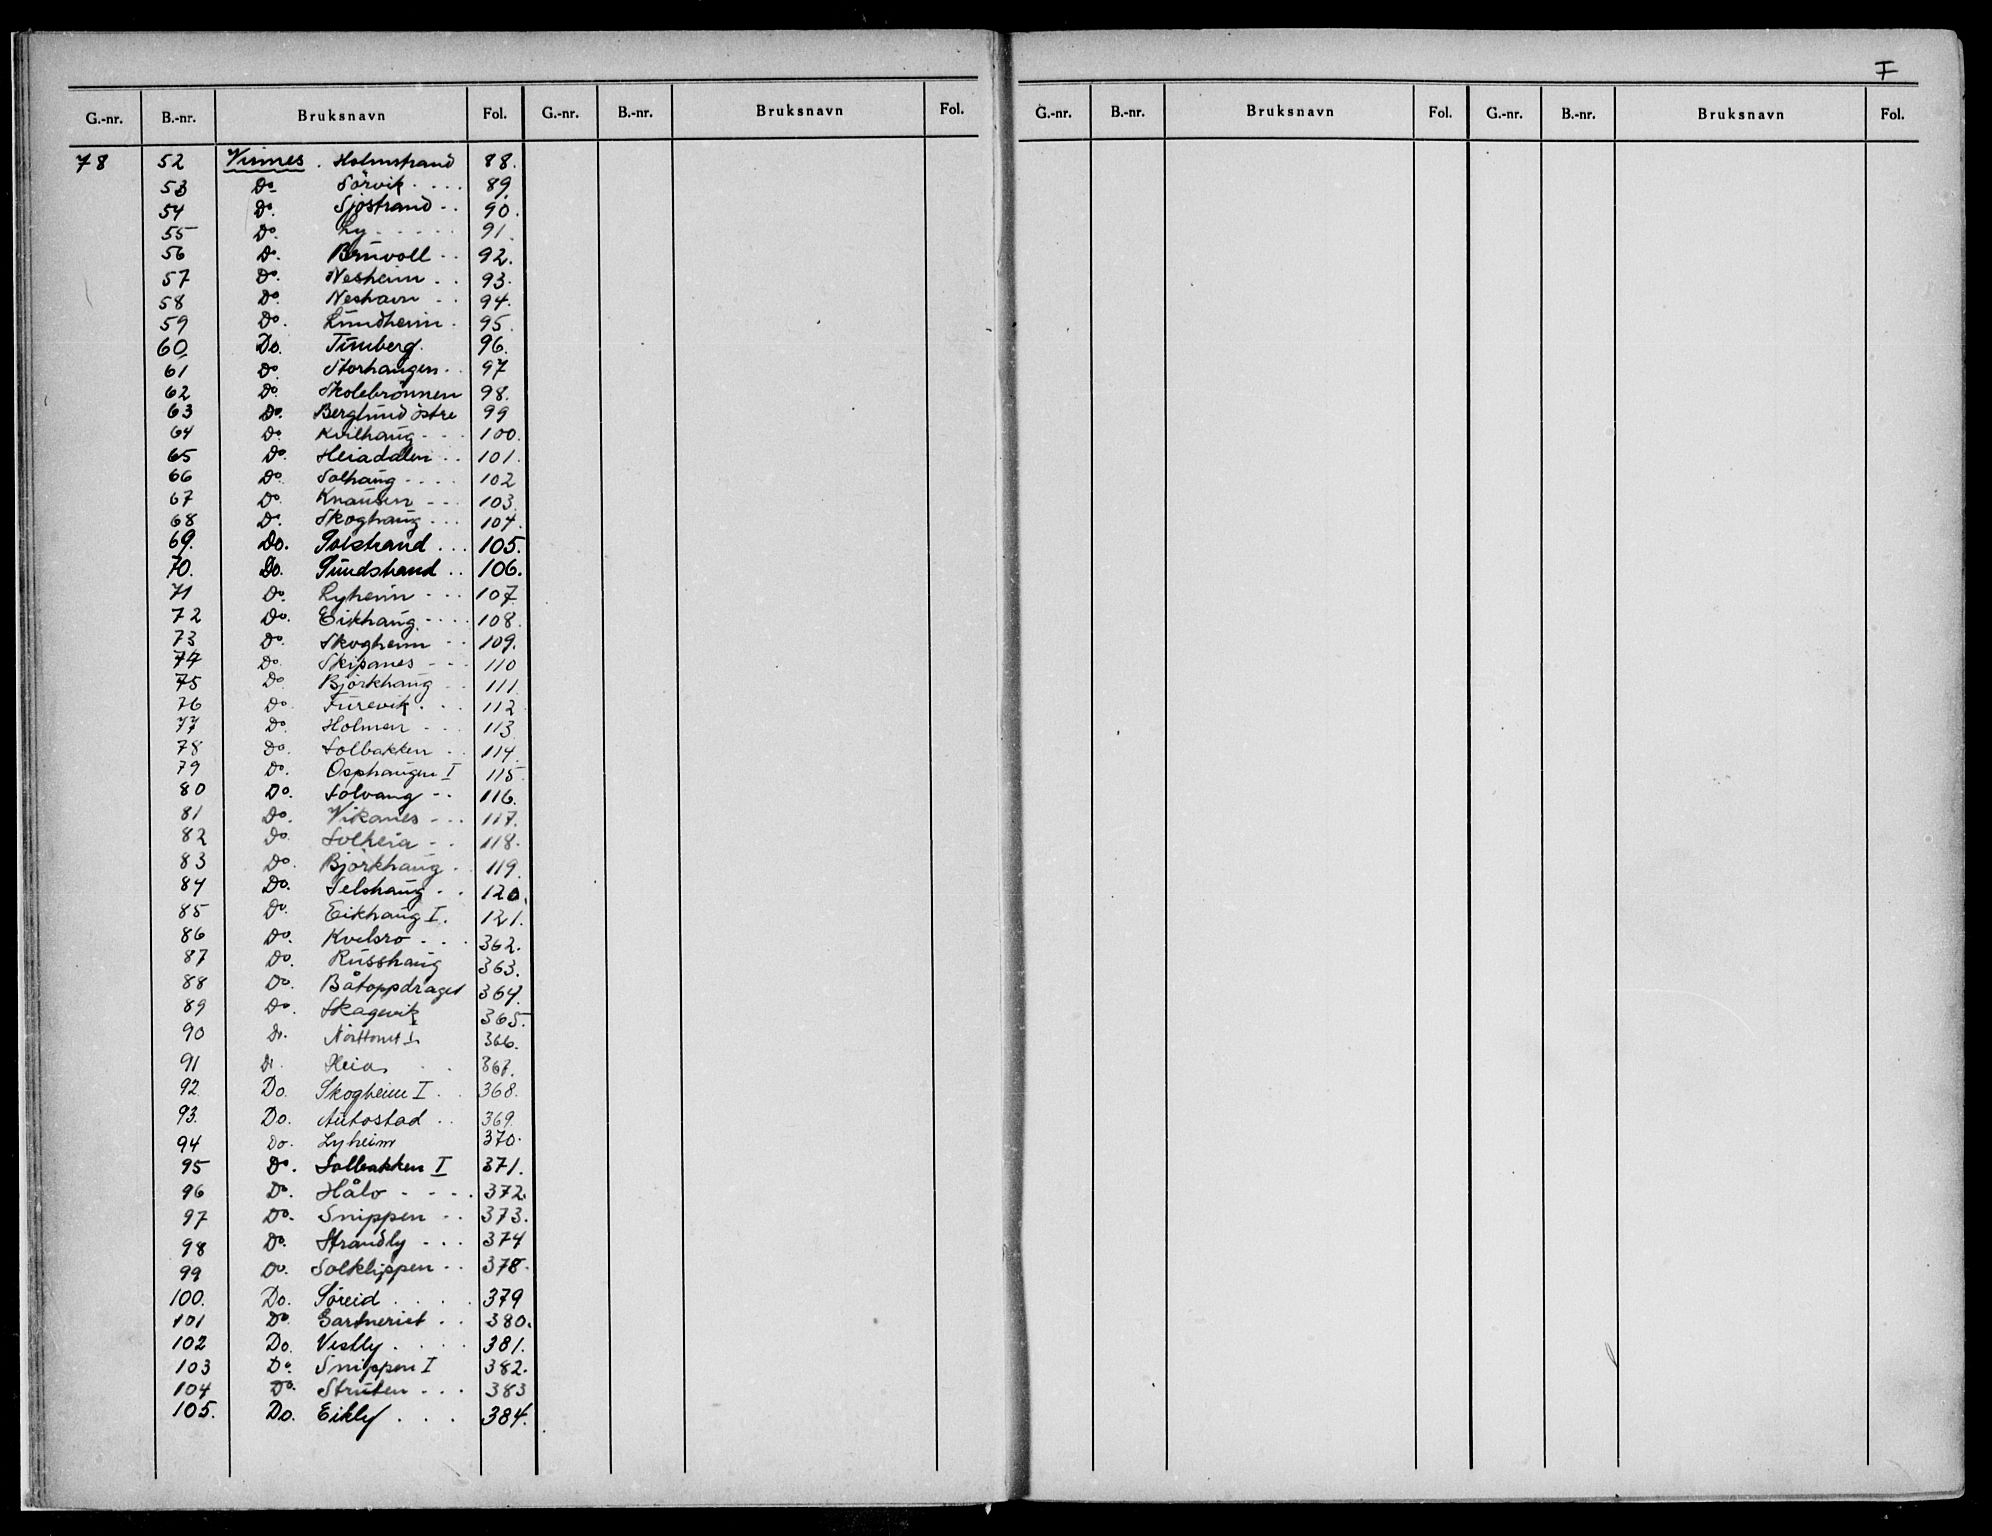 G.-nr. B.-nr. Bruksnavn Fol. G.-nr. B.-nr. Bruksnavn Fol.
78 52 Vinnes . Holmstrand 88.
53 Do Sörvik . . . . 89.
54 Do. Sjöstrand . . 90.
55 Do. Ly . . . . . 91.
56 Do. Brúnvoll . . 92.
57 Do. Nesheim . . 93.
58 Do. Neshavn . . 94.
59 Do. Lúndheim . 95.
60 Do. Túnberg. 96.
61 Do. Storhaugen . 97
62 Do. Skolebrönnen 98.
63 Do. Berglúnd östre 99
64 Do. Kvilhaug . . . 100.
65 Do. Heiadalen . . 101.
66 Do. Solhaug . . . . 102
67 Do. Knausen . . . 103.
68 Do. Skoghaug . . . 104.
69. Do. Solstrand . . . 105.
70. Do. Súndstrand . . 106.
71 Do. Lyheim . . . 107.
72 Do. Eikhaug . . . . 108.
73 Do. Skogheim . . 109.
74 Do. Skipanes . . . 110
75 Do. Björkhaug . . 111.
76 Do. Fúrevik . . . 112
77 Do. Holmen . . . 113
78 Do. Solbakken . . 114.
79 Do. Osphaugen I 115
80 Do. Solvang . . 116.
81 Do. Vikanes . . . 117.
82 Do. Solheia . . 118.
83 Do. Björkhaug . 119.
84 Do. Selshaug . . 120.
85 Do. Eikhaug I. 121.
86 Do. Kvilsro . . . 362.
87 Do. Russhaug 363.
88 Do. Båtoppdraget 364.
89 Do. Skagevik 365.
90 Do. 366.
91 Do. Heia . . 367.
92. Do. Skogheim I . . 368.
93. Do. Autostad . . 369.
94 Do. Lyheim 370.
95 Do. Solbakken I 371.
96 Do. Hålo . . . . 372.
97 Do. Snippen . . 373.
98 Do. Strandly . . . 374
99 Do. Solklippen . . 378.
100. Do. Søreid . . . . 379
101 Do. Gartneriet . . 380.
102 Do. Vestly . . . . 381.
103 Do Snippen I 382.
104 Do. Struten . . . 383
105. Do. Eikly . . . 384.
F
G.-nr. B.-nr. Bruksnavn Fol. G.-nr. B.-nr. Bruksnavn Fol.